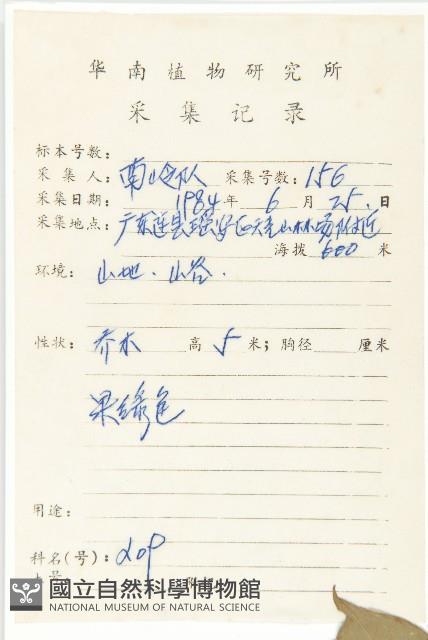 华南植物研究所
采集记录
标本号数：
采集人：南岭队 采集号数：156
采集日期：1984年 6月 25.日
采集地点：广东连县瑶安区天光山林场附近
海拨 600 米
环境：山地．山谷．
性状：乔木 高 5 米；胸径 厘米
果绿色
用途：
科名(号)：
國立自然科學博物館
NATIONAL MUSEUM OF NATURAL SCIENCE